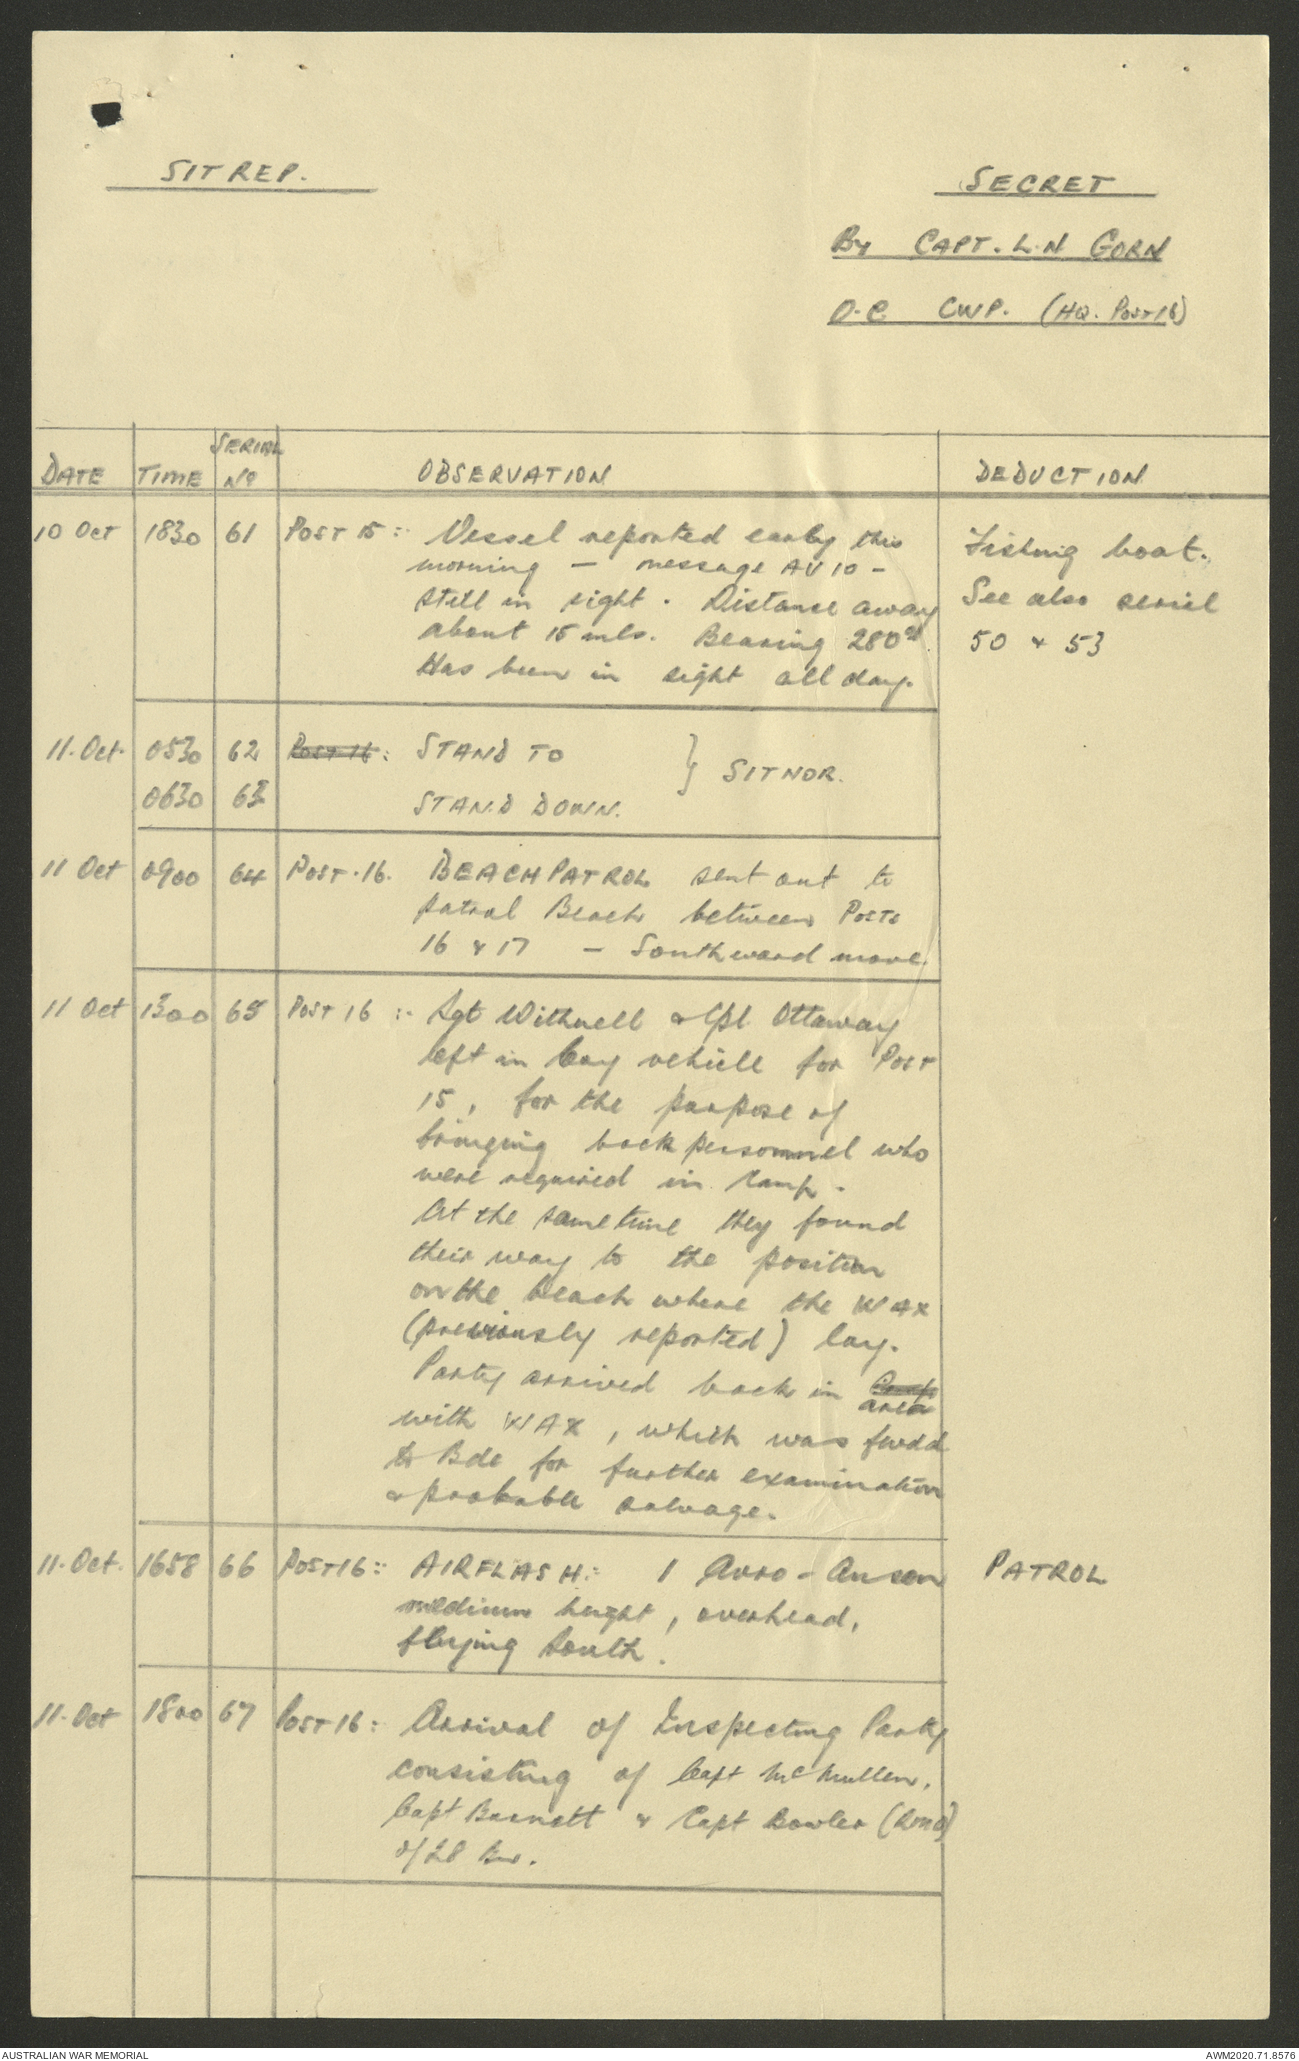 SITREP.
SECRET
By CAPT. L.N GORN
O.C CWP. (HQ. Post 16)
DATE TIME SERIAL No OBSERVATION DEDUCTION
10 Oct 1830 61 Post 15:- Vessel reported early this
morning - message AV10 -
still in sight. Distance away
about 15 mls. Bearing 280°
Has been in sight all day.
Fishing boat.
See also serial
50 & 53
11. Oct. 0530 62 Post 16: STAND TO } SITNOR.
0630 63 STAND DOWN.
11 Oct 0900 64 Post. 16. BEACH PATROL sent out to
patrol Beach between Posts
16 & 17 - Southward move.
11 Oct 1300 65 Post 16 :- Sgt Withnell & Cpl. Ottaway
left in Coy vehicle for Post
15, for the purpose of
bringing back personnel who
were required in camp.
At the same time they found
their way to the position
on the beach where the WAX
(previously reported) lay.
Party arrived back in Camp
area
with WAX, which was fwdd
to Bde for further examination
& probable salvage.
11. Oct. 1658 66 Post 16:- AIRFLASH:- 1 Avro-Anson
medium height, overhead,
flying South.
PATROL
11. Oct 1800 67 Post 16: Arrival of Inspecting Party
consisting of Capt McMullen,
Capt Barnett & Capt Bowler (RMO)
of 28 Bn.
AUSTRALIAN WAR MEMORIAL
AWM2020.71.8576